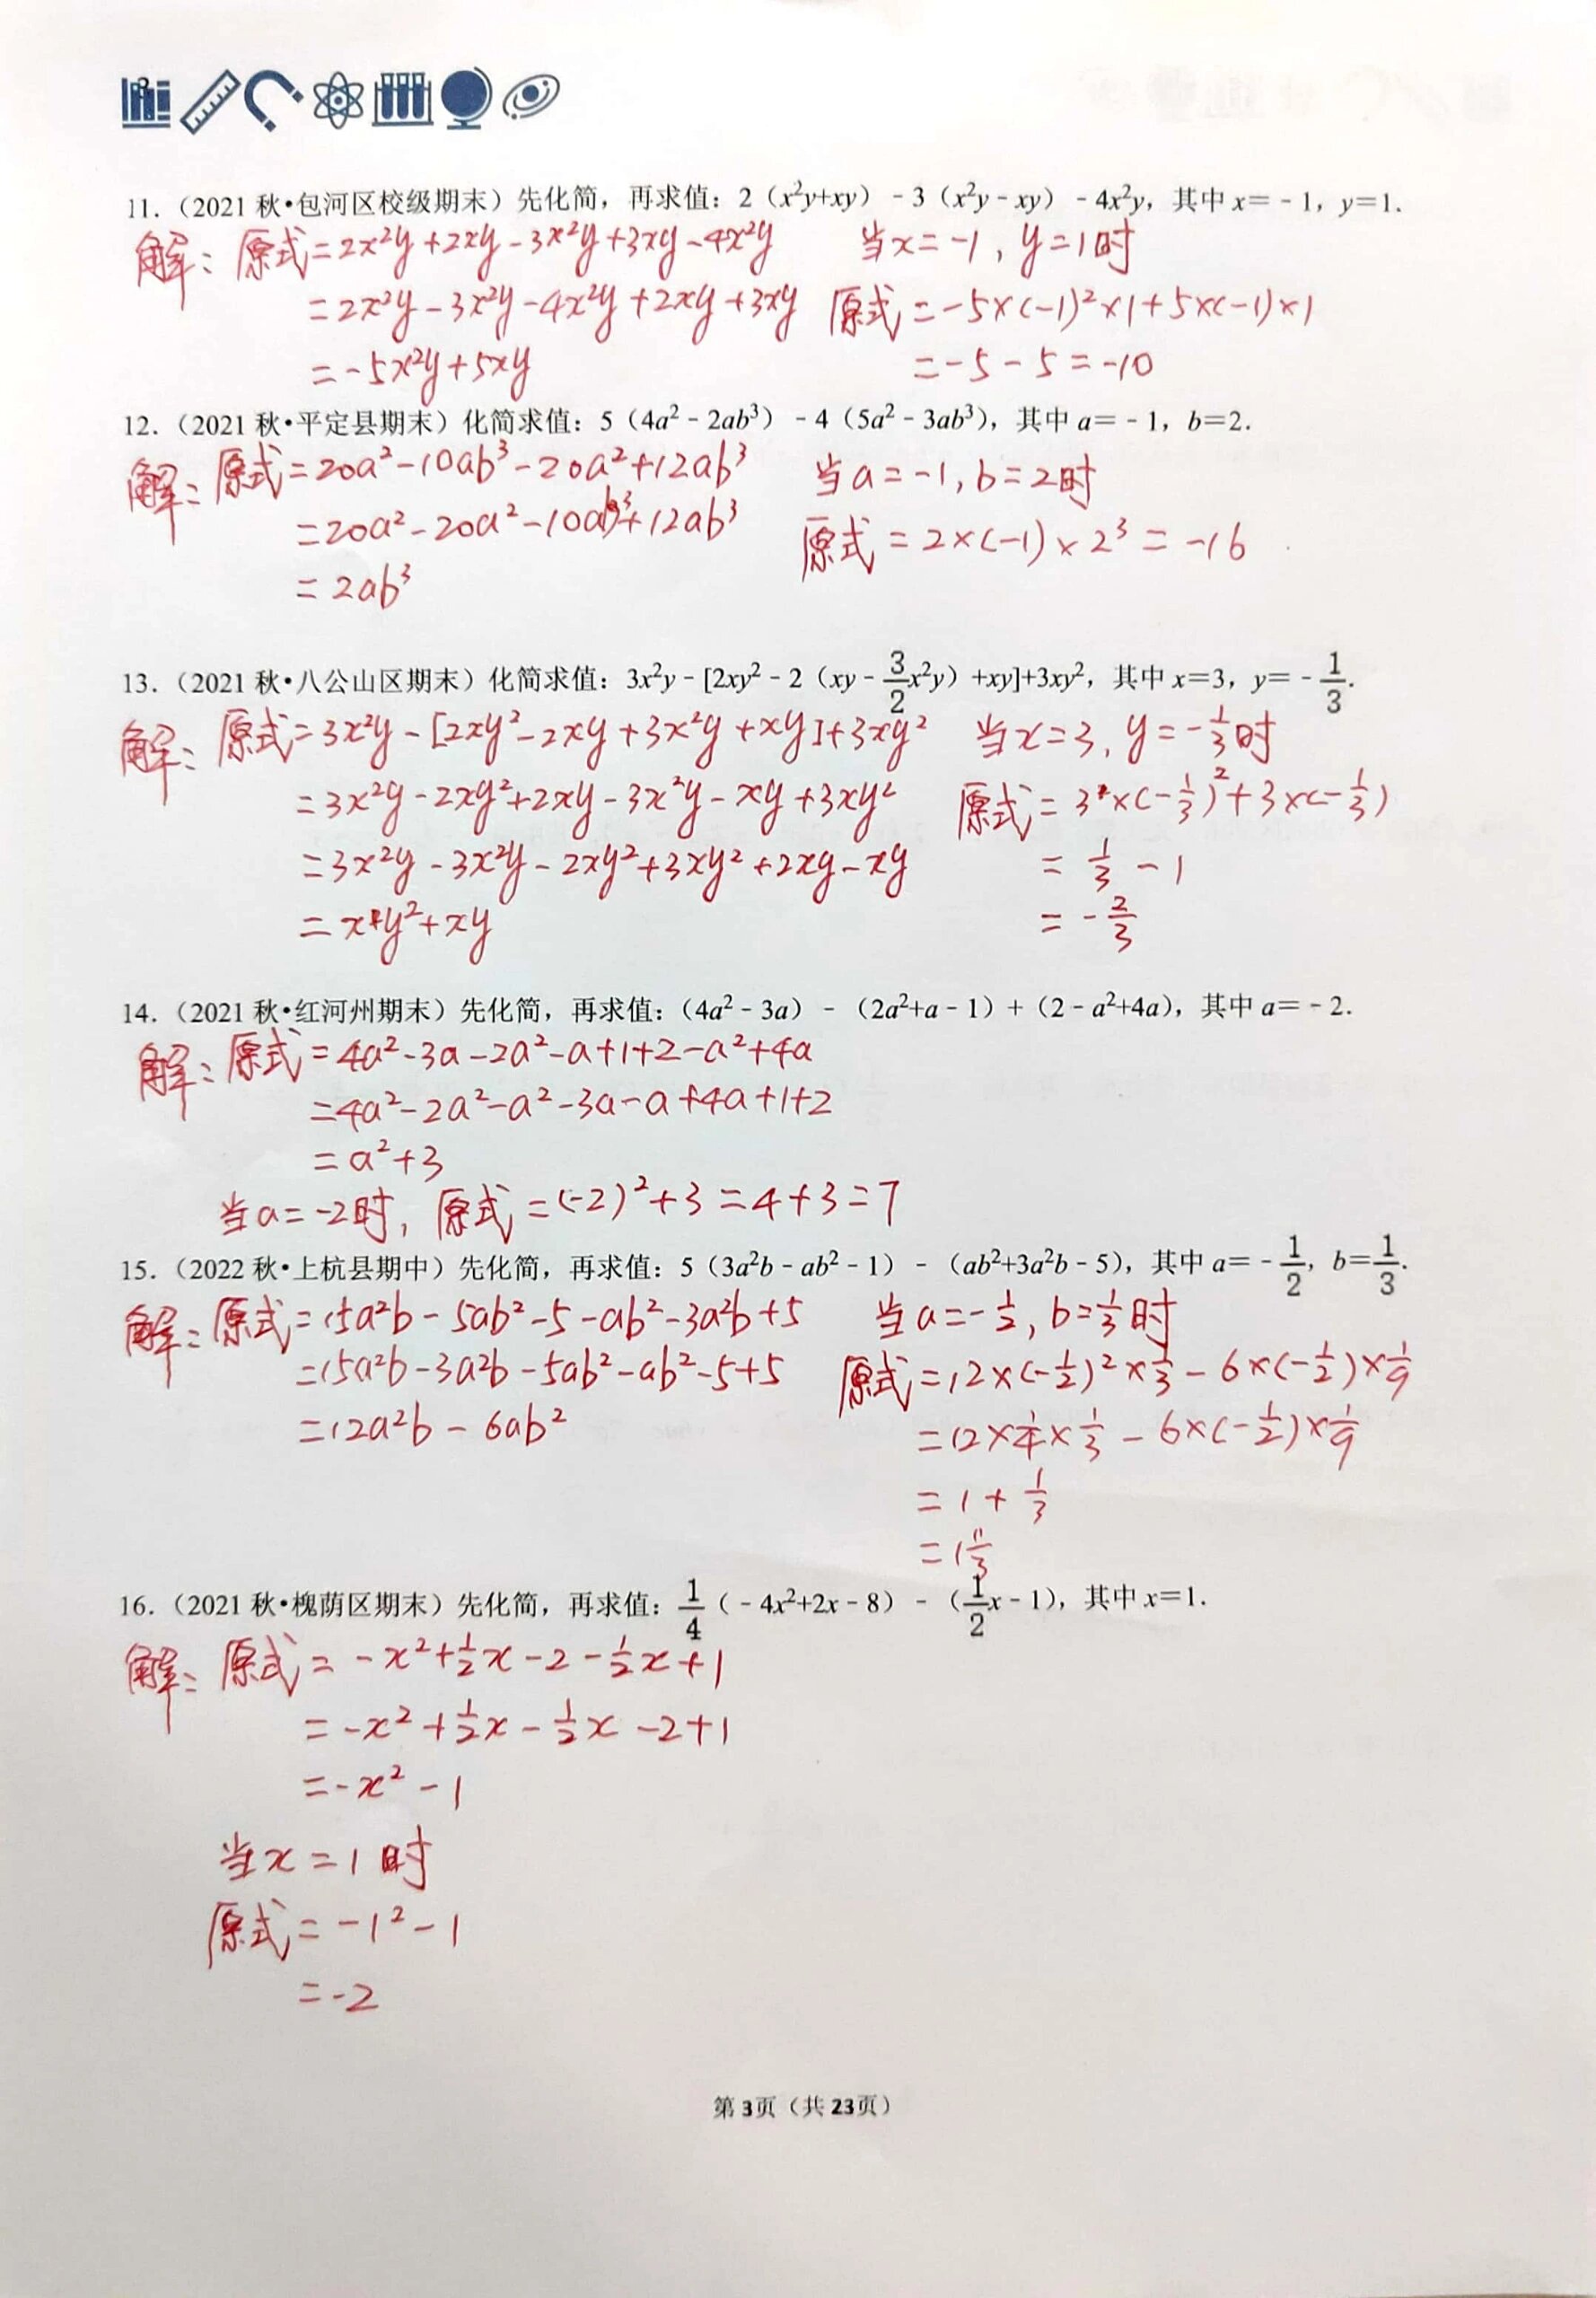 11.（2021 秋•包河区校级期末）先化简，再求值：2（x²y+xy）﹣3（x²y﹣xy）﹣4x²y，其中 x=﹣1，y=1.
解：原式=2x²y+2xy-3x²y+3xy-4x²y 当x=-1, y=1时
=2x²y-3x²y-4x²y+2xy+3xy 原式=-5×(-1)²×1+5×(-1)×1
=-5x²y+5xy =-5-5=-10
12.（2021 秋•平定县期末）化简求值：5（4a²﹣2ab³）﹣4（5a²﹣3ab³），其中 a=﹣1，b=2.
解：原式=20a²-10ab³-20a²+12ab³ 当a=-1, b=2时
=20a²-20a²-10ab³+12ab³ 原式=2×(-1)×2³=-16
=2ab³
13.（2021 秋•八公山区期末）化简求值：3x²y﹣[2xy²﹣2（xy﹣3/2x²y）+xy]+3xy²，其中 x=3，y=﹣1/3.
解：原式=3x²y-[2xy²-2xy+3x²y+xy]+3xy² 当x=3, y=-1/3时
=3x²y-2xy²+2xy-3x²y-xy+3xy² 原式=3×(-1/3)²+3×(-1/3)
=3x²y-3x²y-2xy²+3xy²+2xy-xy =1/3-1
=xy²+xy =-2/3
14.（2021 秋•红河州期末）先化简，再求值：（4a²﹣3a）﹣（2a²+a﹣1）+（2﹣a²+4a），其中 a=﹣2.
解：原式=4a²-3a-2a²-a+1+2-a²+4a
=4a²-2a²-a²-3a-a+4a+1+2
=a²+3
当a=-2时, 原式=(-2)²+3=4+3=7
15.（2022 秋•上杭县期中）先化简，再求值：5（3a²b﹣ab²﹣1）﹣（ab²+3a²b﹣5），其中 a=﹣1/2，b=1/3.
解：原式=15a²b-5ab²-5-ab²-3a²b+5 当a=-1/2, b=1/3时
=15a²b-3a²b-5ab²-ab²-5+5 原式=12×(-1/2)²×1/3-6×(-1/2)×1/9
=12a²b-6ab² =12×1/4×1/3-6×(-1/2)×1/9
=1+1/3
=1 1/3
16.（2021 秋•槐荫区期末）先化简，再求值：1/4（﹣4x²+2x﹣8）﹣（1/2x﹣1），其中 x=1.
解：原式=-x²+1/2x-2-1/2x+1
=-x²+1/2x-1/2x-2+1
=-x²-1
当x=1时
原式=-1²-1
=-2
第 3页（共 23页）